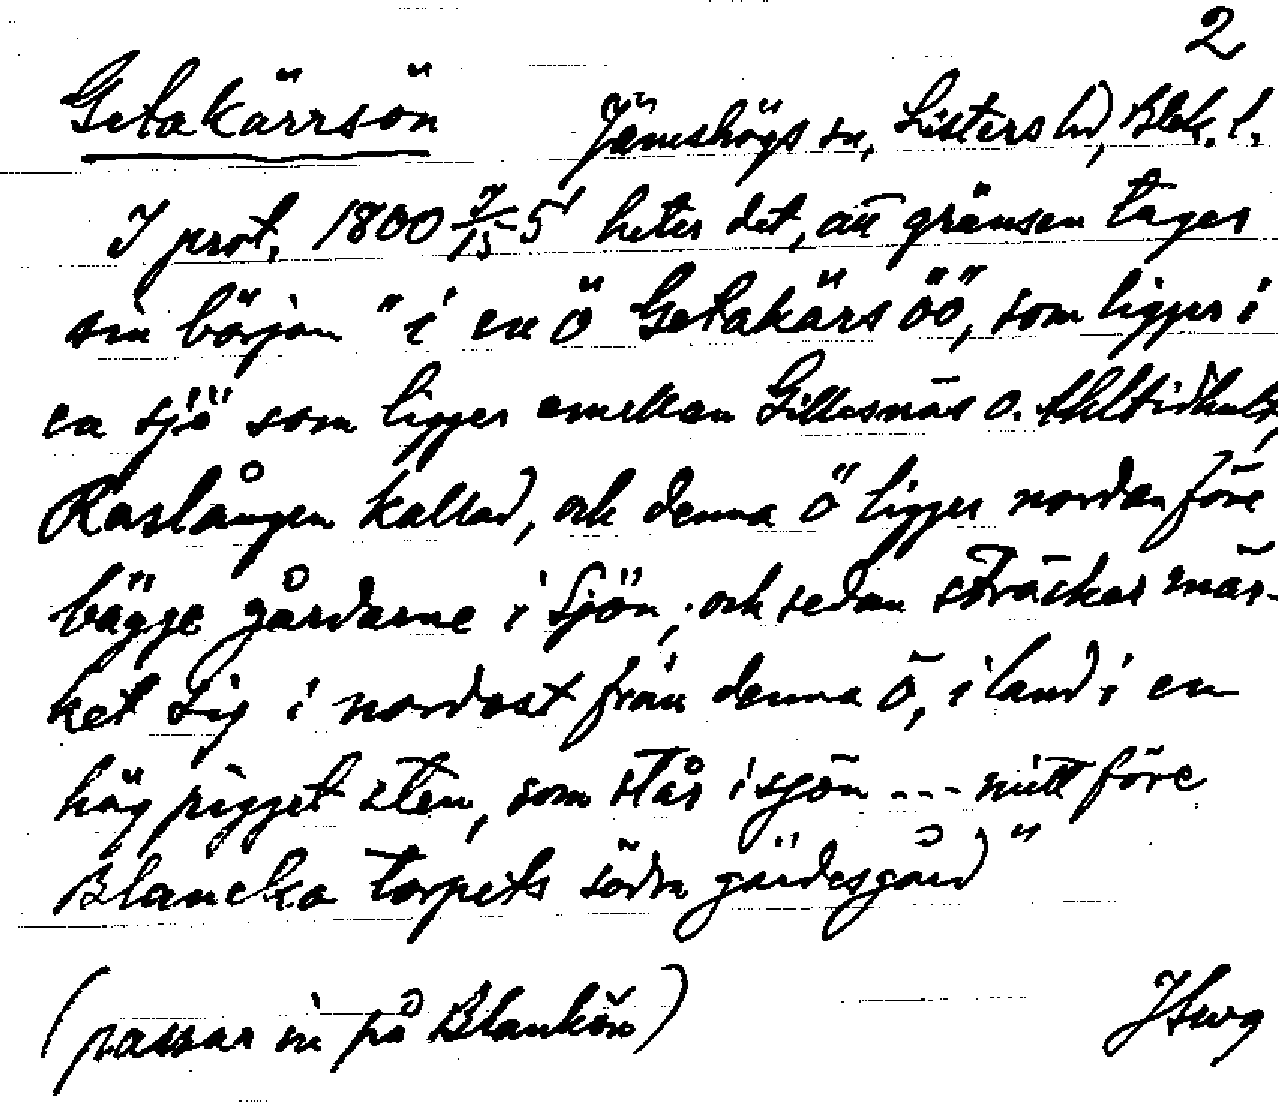 2
Getakärrsön Jämshögs sn, Listers hd, Blek. l.
I prot. 1800 7/15 5' heter det, att gränsen tager
sin början "i en ö Getakärs öö, som ligger i
en sjö" som ligger emellan Gillesnäs o. Alltidhult,
Raslången kallad, och denna ö ligger nordan före
bägge gårdarne i Sjön, och sedan sträcker mär-
ket sig i nordost från denna ö, i land i en
hög pigget sten, som står i sjön --- mitt före
Blancka torpets södra gärdesgård"
(passar in på Blankön)